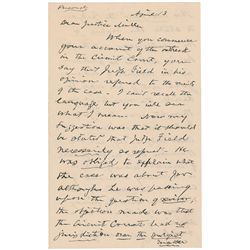 Personal
April 13
Dear Justice Miller
When you commence
your account of the outbreak
in the Circuit Court, you
say that Judge Field in his
opinion referred to the
of the case. I can't recall the
language but you will see
what I mean. Now my
suggestion was that it should
be stated that Judge Field
necessarily so spoke. He
was obliged to explain what
the case was about for
although he was passing
upon the question of
the objection made was that
the Circuit Court had no
jurisdiction over the subject
matter